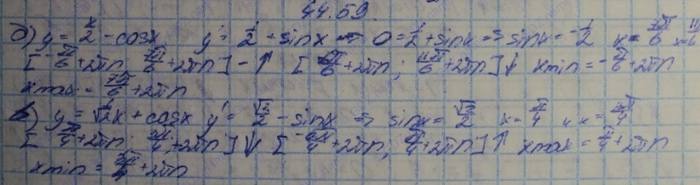 44.59.
б) y = x/2 - cosx y' = 1/2 + sinx ⇒ 0 = 1/2 + sinx ⇒ sinx = -1/2 x = 7π/6 x = 11π/6
[-π/6 + 2πn; 7π/6 + 2πn] - ↑ [7π/6 + 2πn; 11π/6 + 2πn] ↓ xmin = -π/6 + 2πn
xmax = 7π/6 + 2πn
в) y = x + cosx y' = √2/2 - sinx ⇒ sinx = √2/2 x = π/4 и x = 3π/4
[π/4 + 2πn; 3π/4 + 2πn] ↓ [ + 2πn; π/4 + 2πn] ↑ xmax = π/4 + 2πn
xmin = 3π/4 + 2πn